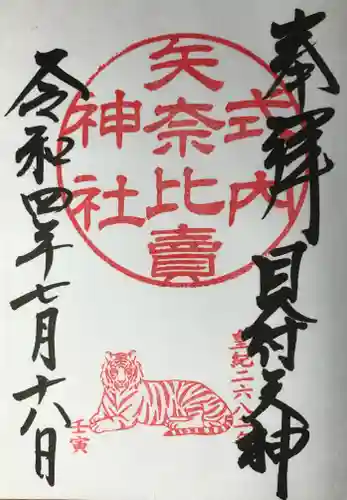 奉拝
見付天神
式内
矢奈比賣
神社
皇紀二六八二年
壬寅
令和四年七月十八日